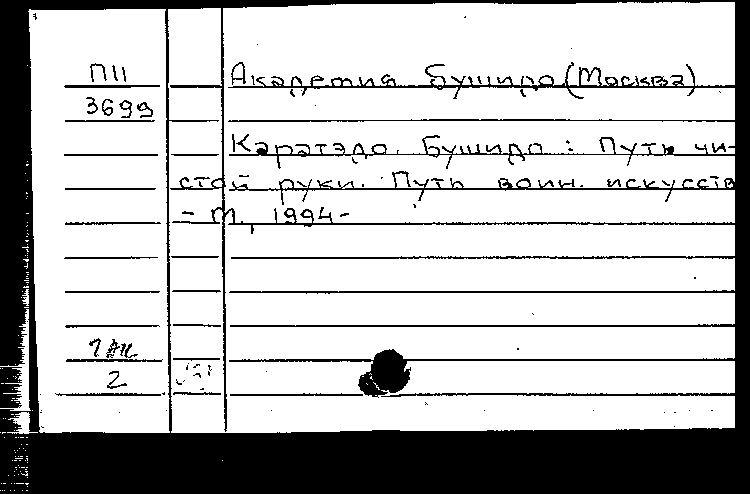 П11
3699
Академия Бушидо (Москва)
Каратэдо. Бушидо : Путь чи-
стой руки. Путь воин. искусств
- М., 1994-
1 АК
2